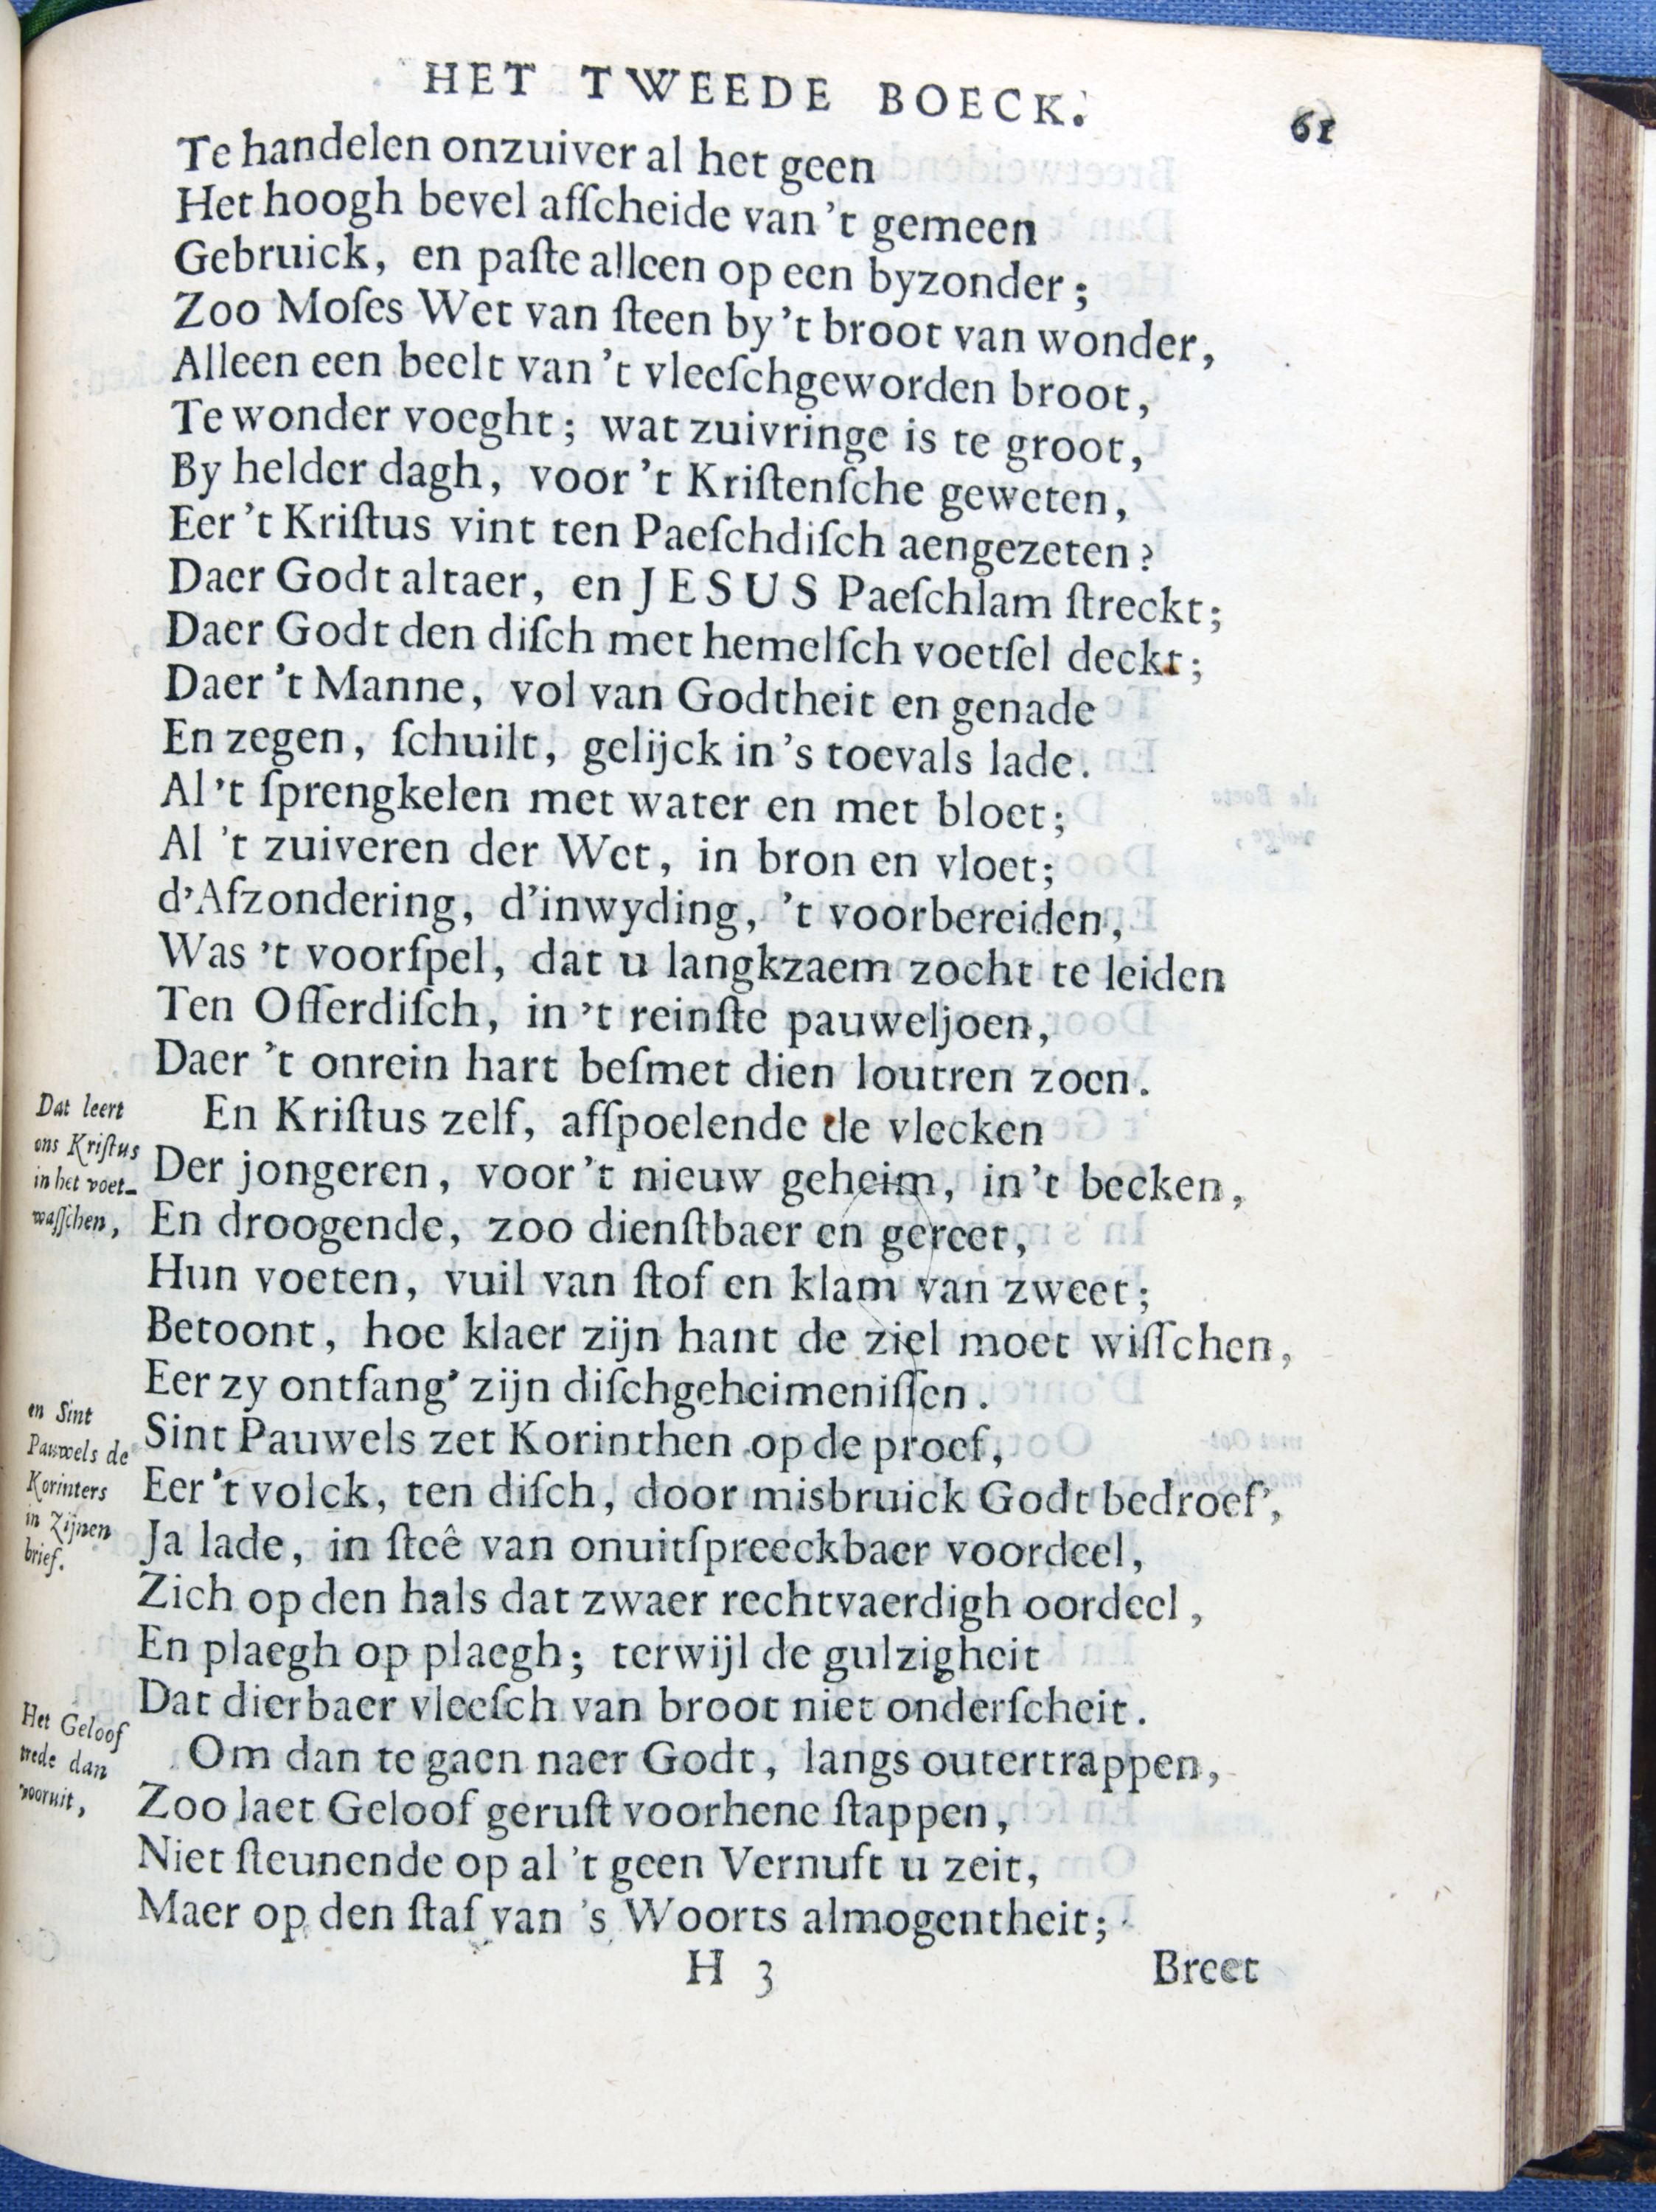 HET TWEEDE BOECK.
61
Te handelen onzuiver al het geen
Het hoogh bevel afſcheide van 't gemeen
Gebruick, en paſte alleen op een byzonder;
Zoo Moſes Wet van ſteen by 't broot van wonder,
Alleen een beelt van 't vleeſchgeworden broot,
Te wonder voeght; wat zuivringe is te groot,
By helder dagh, voor 't Kriſtenſche geweten,
Eer 't Kriſtus vint ten Paeſchdiſch aengezeten?
Daer Godt altaer, en JESUS Paeſchlam ſtreckt;
Daer Godt den diſch met hemelſch voetſel deckt;
Daer 't Manne, vol van Godtheit en genade
En zegen, ſchuilt, gelijck in 's toevals lade.
Al 't ſprengkelen met water en met bloet;
Al 't zuiveren der Wet, in bron en vloet;
d'Afzondering, d'inwyding, 't voorbereiden,
Was 't voorſpel, dat u langkzaem zocht te leiden
Ten Offerdiſch, in 't reinſte pauweljoen,
Daer 't onrein hart beſmet dien loutren zoen.
Dat leert
ons Kriſtus
in het voet-
waſſchen,
En Kriſtus zelf, afſpoelende de vlecken
Der jongeren, voor 't nieuw geheim, in 't becken,
En droogende, zoo dienſtbaer en gereet,
Hun voeten, vuil van ſtof en klam van zweet;
Betoont, hoe klaer zijn hant de ziel moet wiſſchen,
Eer zy ontfang' zijn diſchgeheimeniſſen.
en Sint
Pauwels de
Korinters
in zijnen
brief.
Sint Pauwels zet Korinthen op de proef,
Eer 't volck, ten diſch, door misbruick Godt bedroef',
Ja lade, in ſteê van onuitſpreeckbaer voordeel,
Zich op den hals dat zwaer rechtvaerdigh oordeel,
En plaegh op plaegh; terwijl de gulzigheit
Dat dierbaer vleeſch van broot niet onderſcheit.
Het Geloof
trede dan
vooruit,
Om dan te gaen naer Godt, langs outertrappen,
Zoo laet Geloof geruſt voorhene ſtappen,
Niet ſteunende op al 't geen Vernuft u zeit,
Maer op den ſtaf van 's Woorts almogentheit;
H 3
Breet